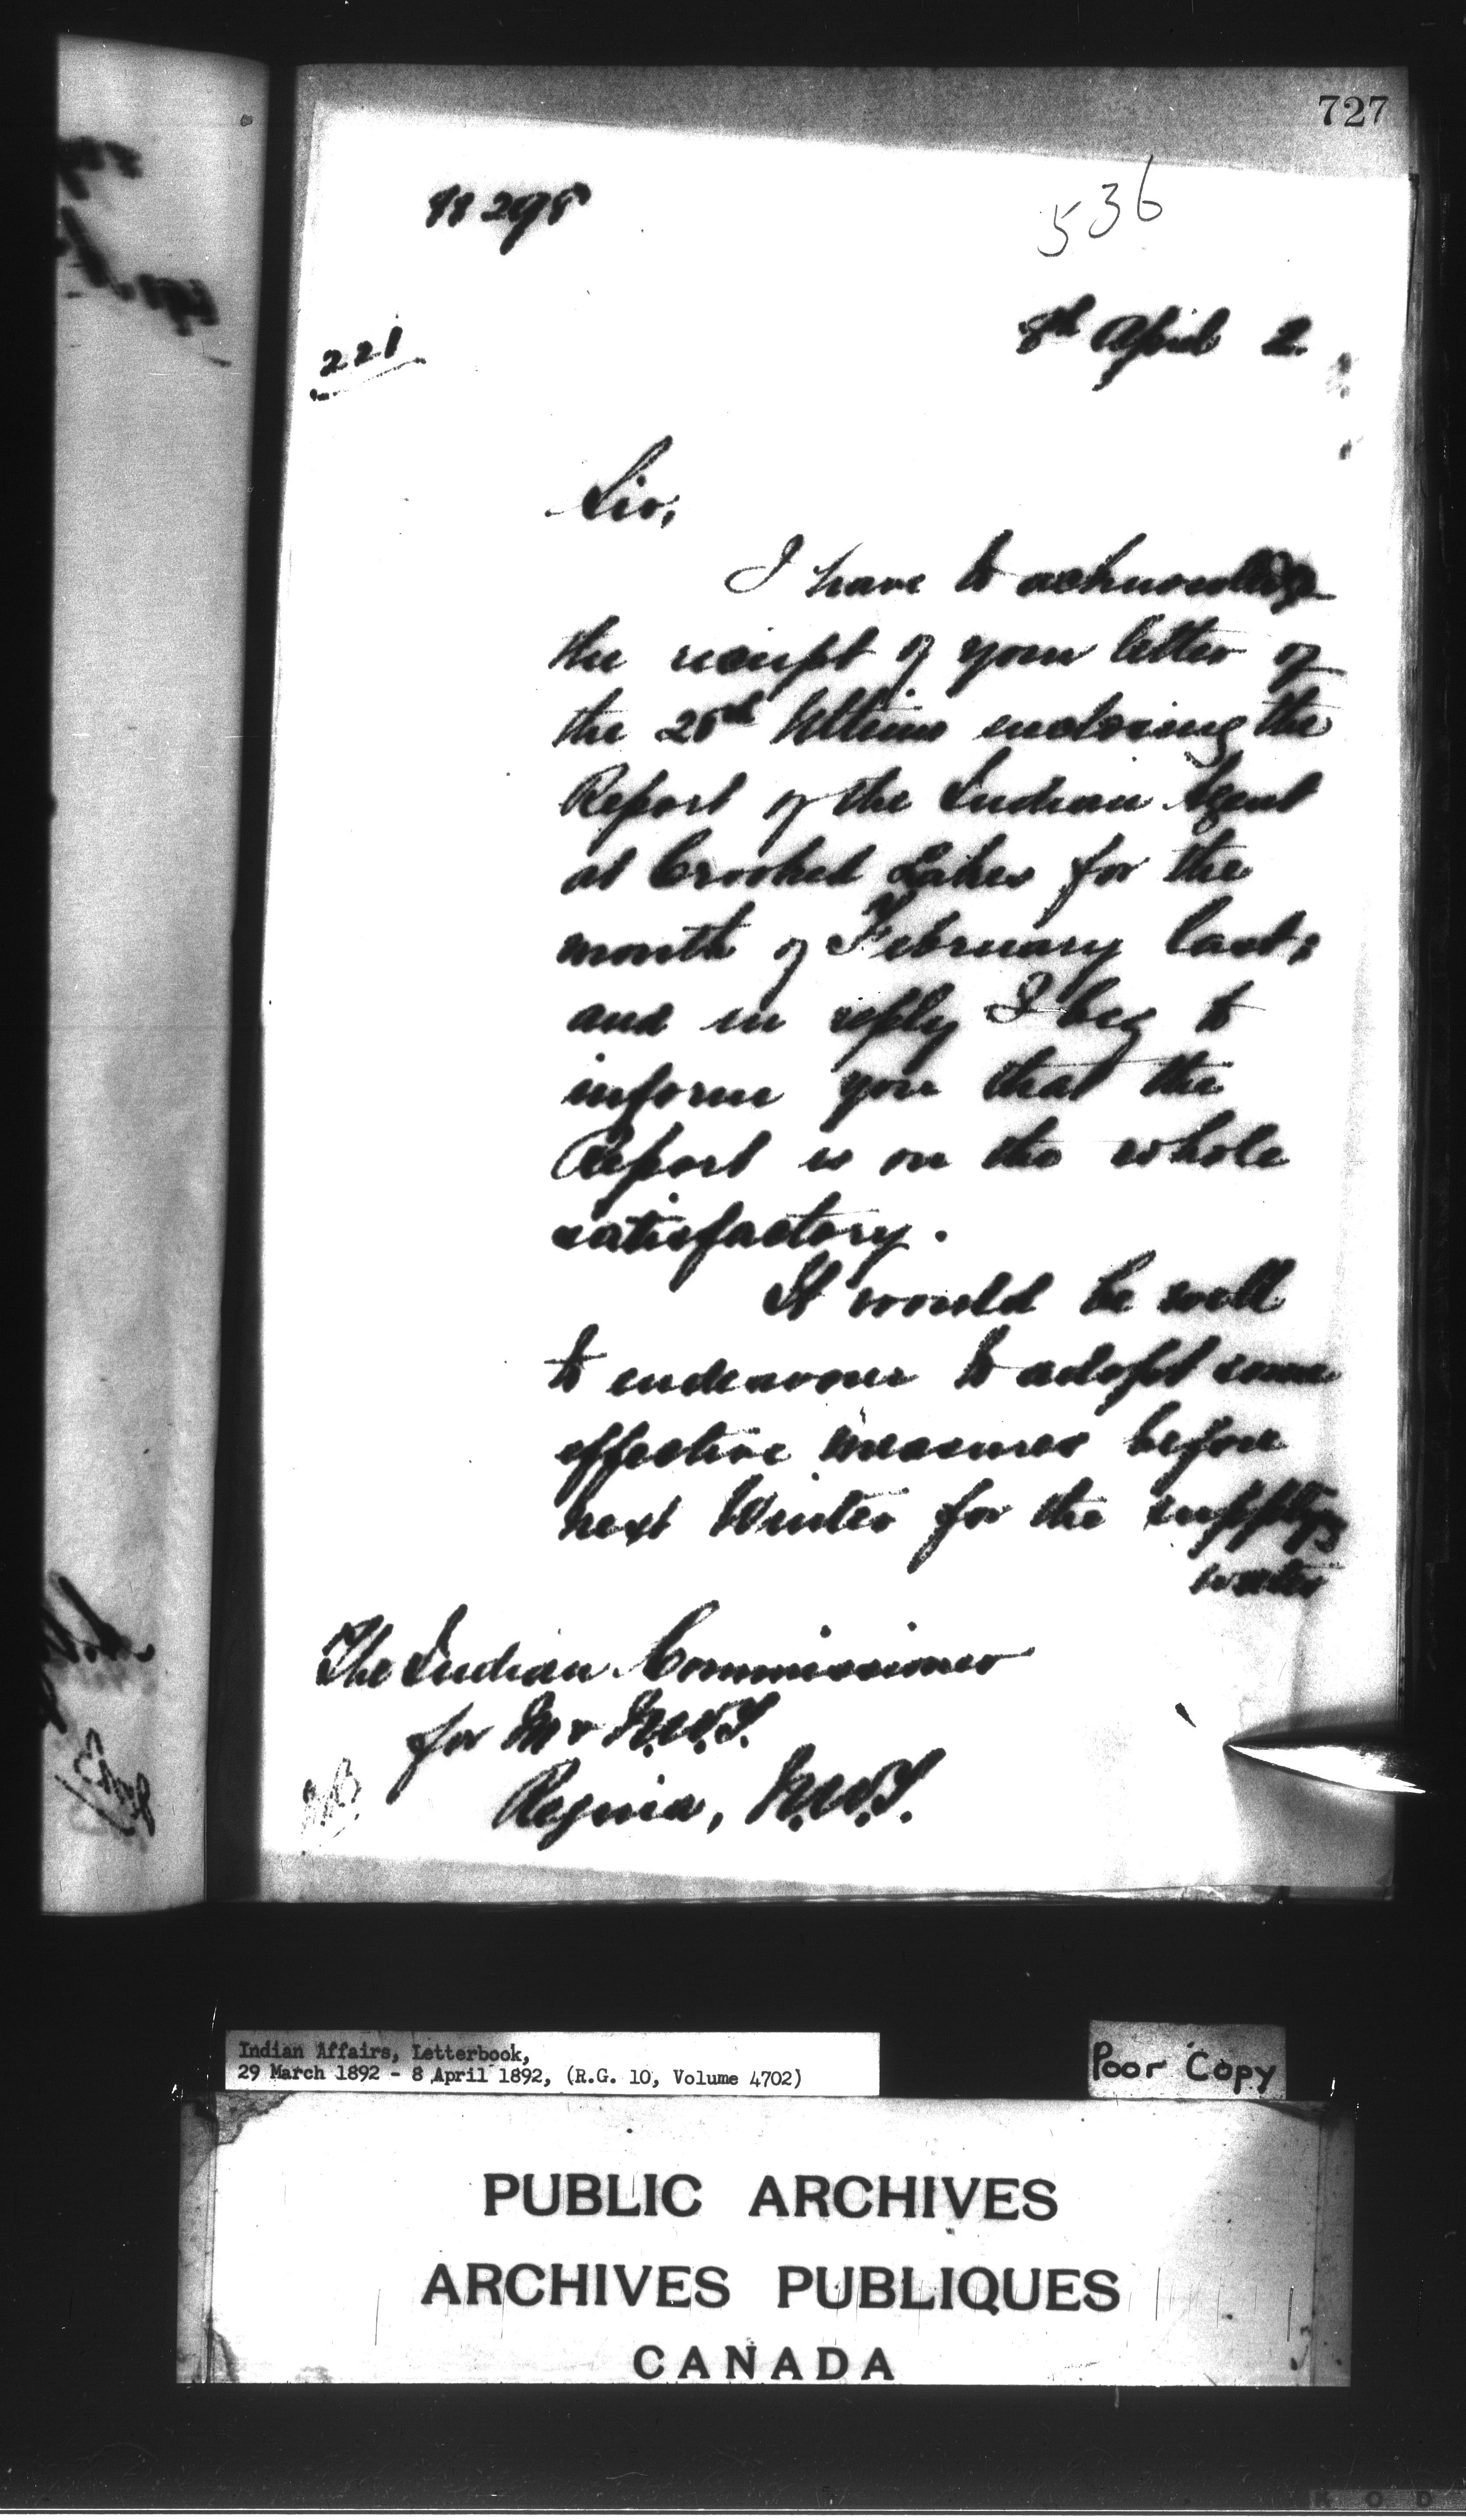 727
536
221
8th April 2.
Sir,
I have to acknowledge
the receipt of your letter of
the 28th Ultimo enclosing the
Report of the Indian Agent
at Crooked Lakes for the
month of February last;
and in reply I beg to
inform you that the
Report is on the whole
satisfactory.
It would be well
to endeavour to adopt some
effective measures before
next Winter for the supply
water
The Indian Commissioner
for M & N.W.T.
Regina, N.W.T.
Indian Affairs, Letterbook,
29 March 1892 - 8 April 1892, (R.G. 10, Volume 4702)
Poor Copy
PUBLIC ARCHIVES
ARCHIVES PUBLIQUES
CANADA